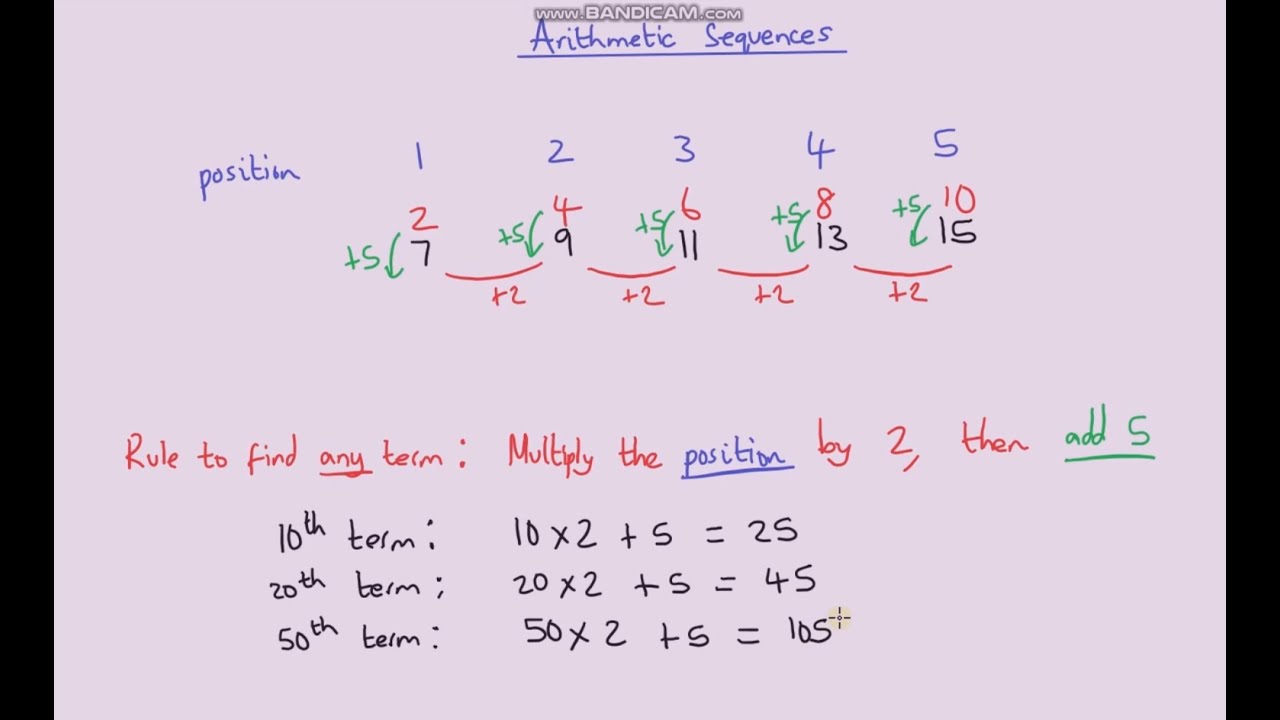 www.BANDICAM.com
Arithmetic Sequences
position 1 2 3 4 5
2 4 6 8 10
+5 7 +5 9 +5 11 +5 13 +5 15
+2 +2 +2 +2
Rule to find any term: Multiply the position by 2, then add 5
10th term: 10 × 2 + 5 = 25
20th term: 20 × 2 + 5 = 45
50th term: 50 × 2 + 5 = 105